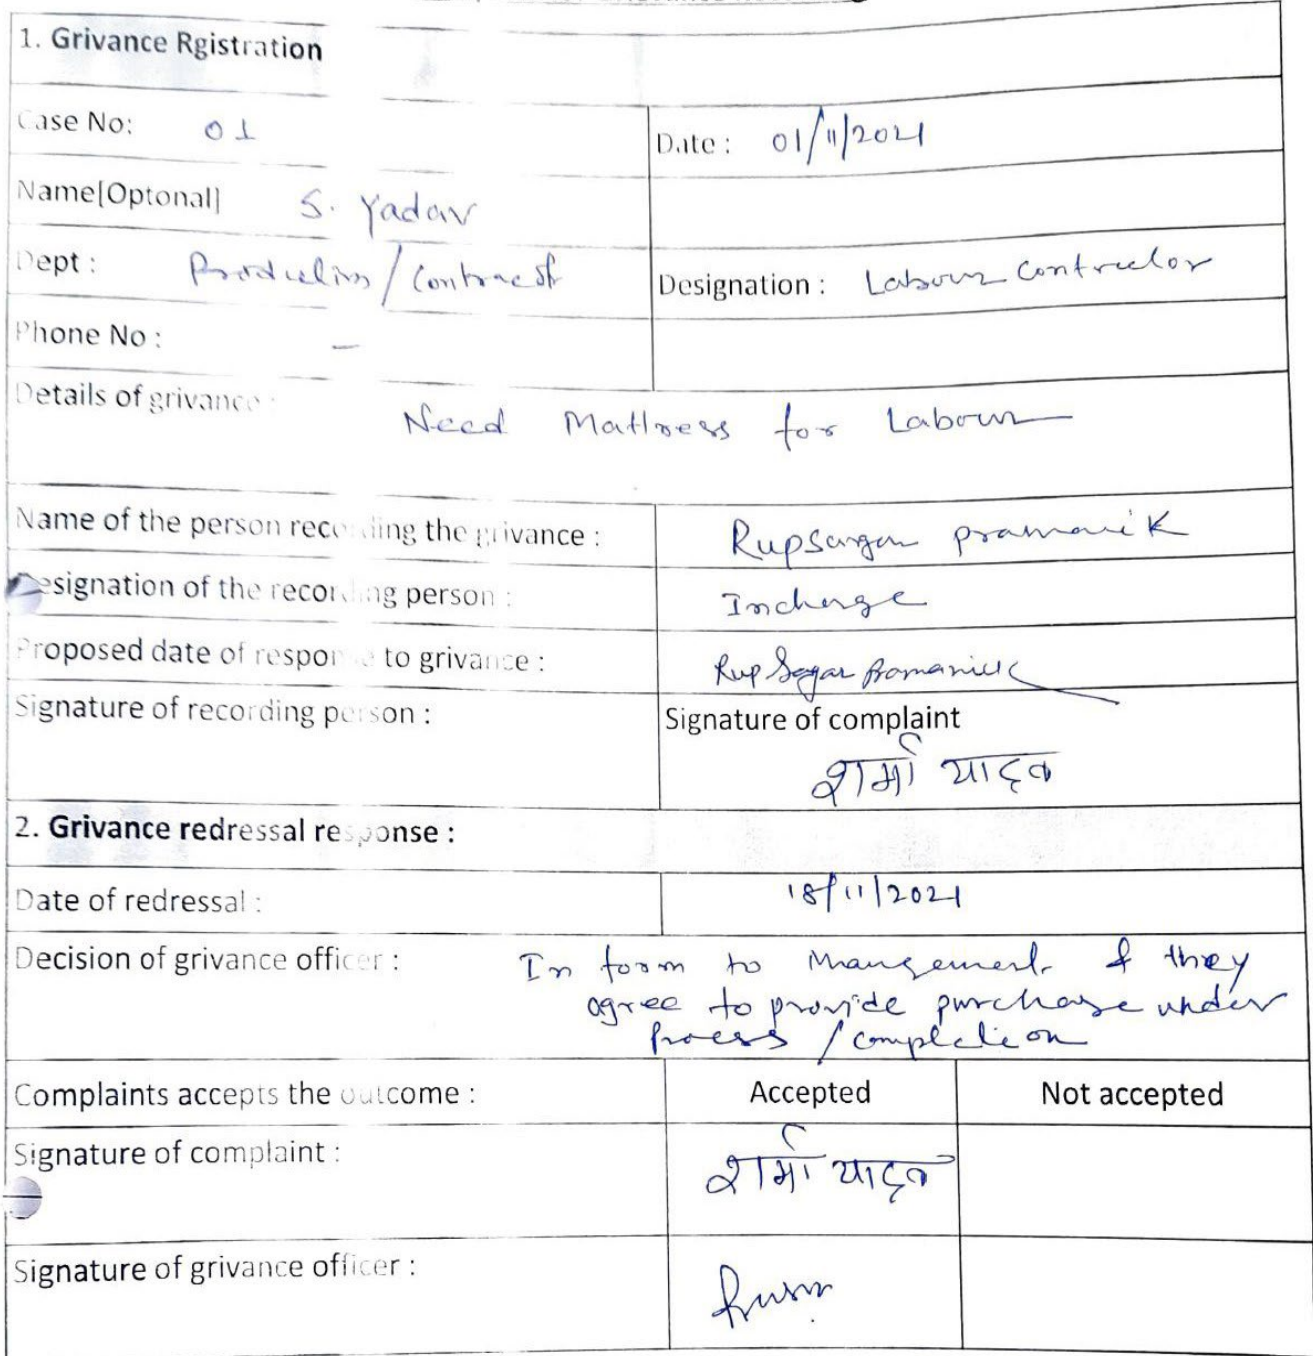 1. Grivance Rgistration
Case No: 01
Date : 01/11/2021
Name[Optonal] S. Yadav
Dept : Production/Contract
Designation : Labour Contractor
Phone No : –
Details of grivance :
Need Mattress for Labour
Name of the person recording the grivance : Rupsagar pramanik
Designation of the recording person : Incharge
Proposed date of response to grivance : Rup Sagar Pramanick
Signature of recording person :
Signature of complaint
शर्मा यादव
2. Grivance redressal response :
Date of redressal : 18/11/2021
Decision of grivance officer : In form to Mangement & they
agree to provide purchase under
Process / completion
Complaints accepts the outcome : Accepted Not accepted
Signature of complaint : शर्मा यादव
Signature of grivance officer :